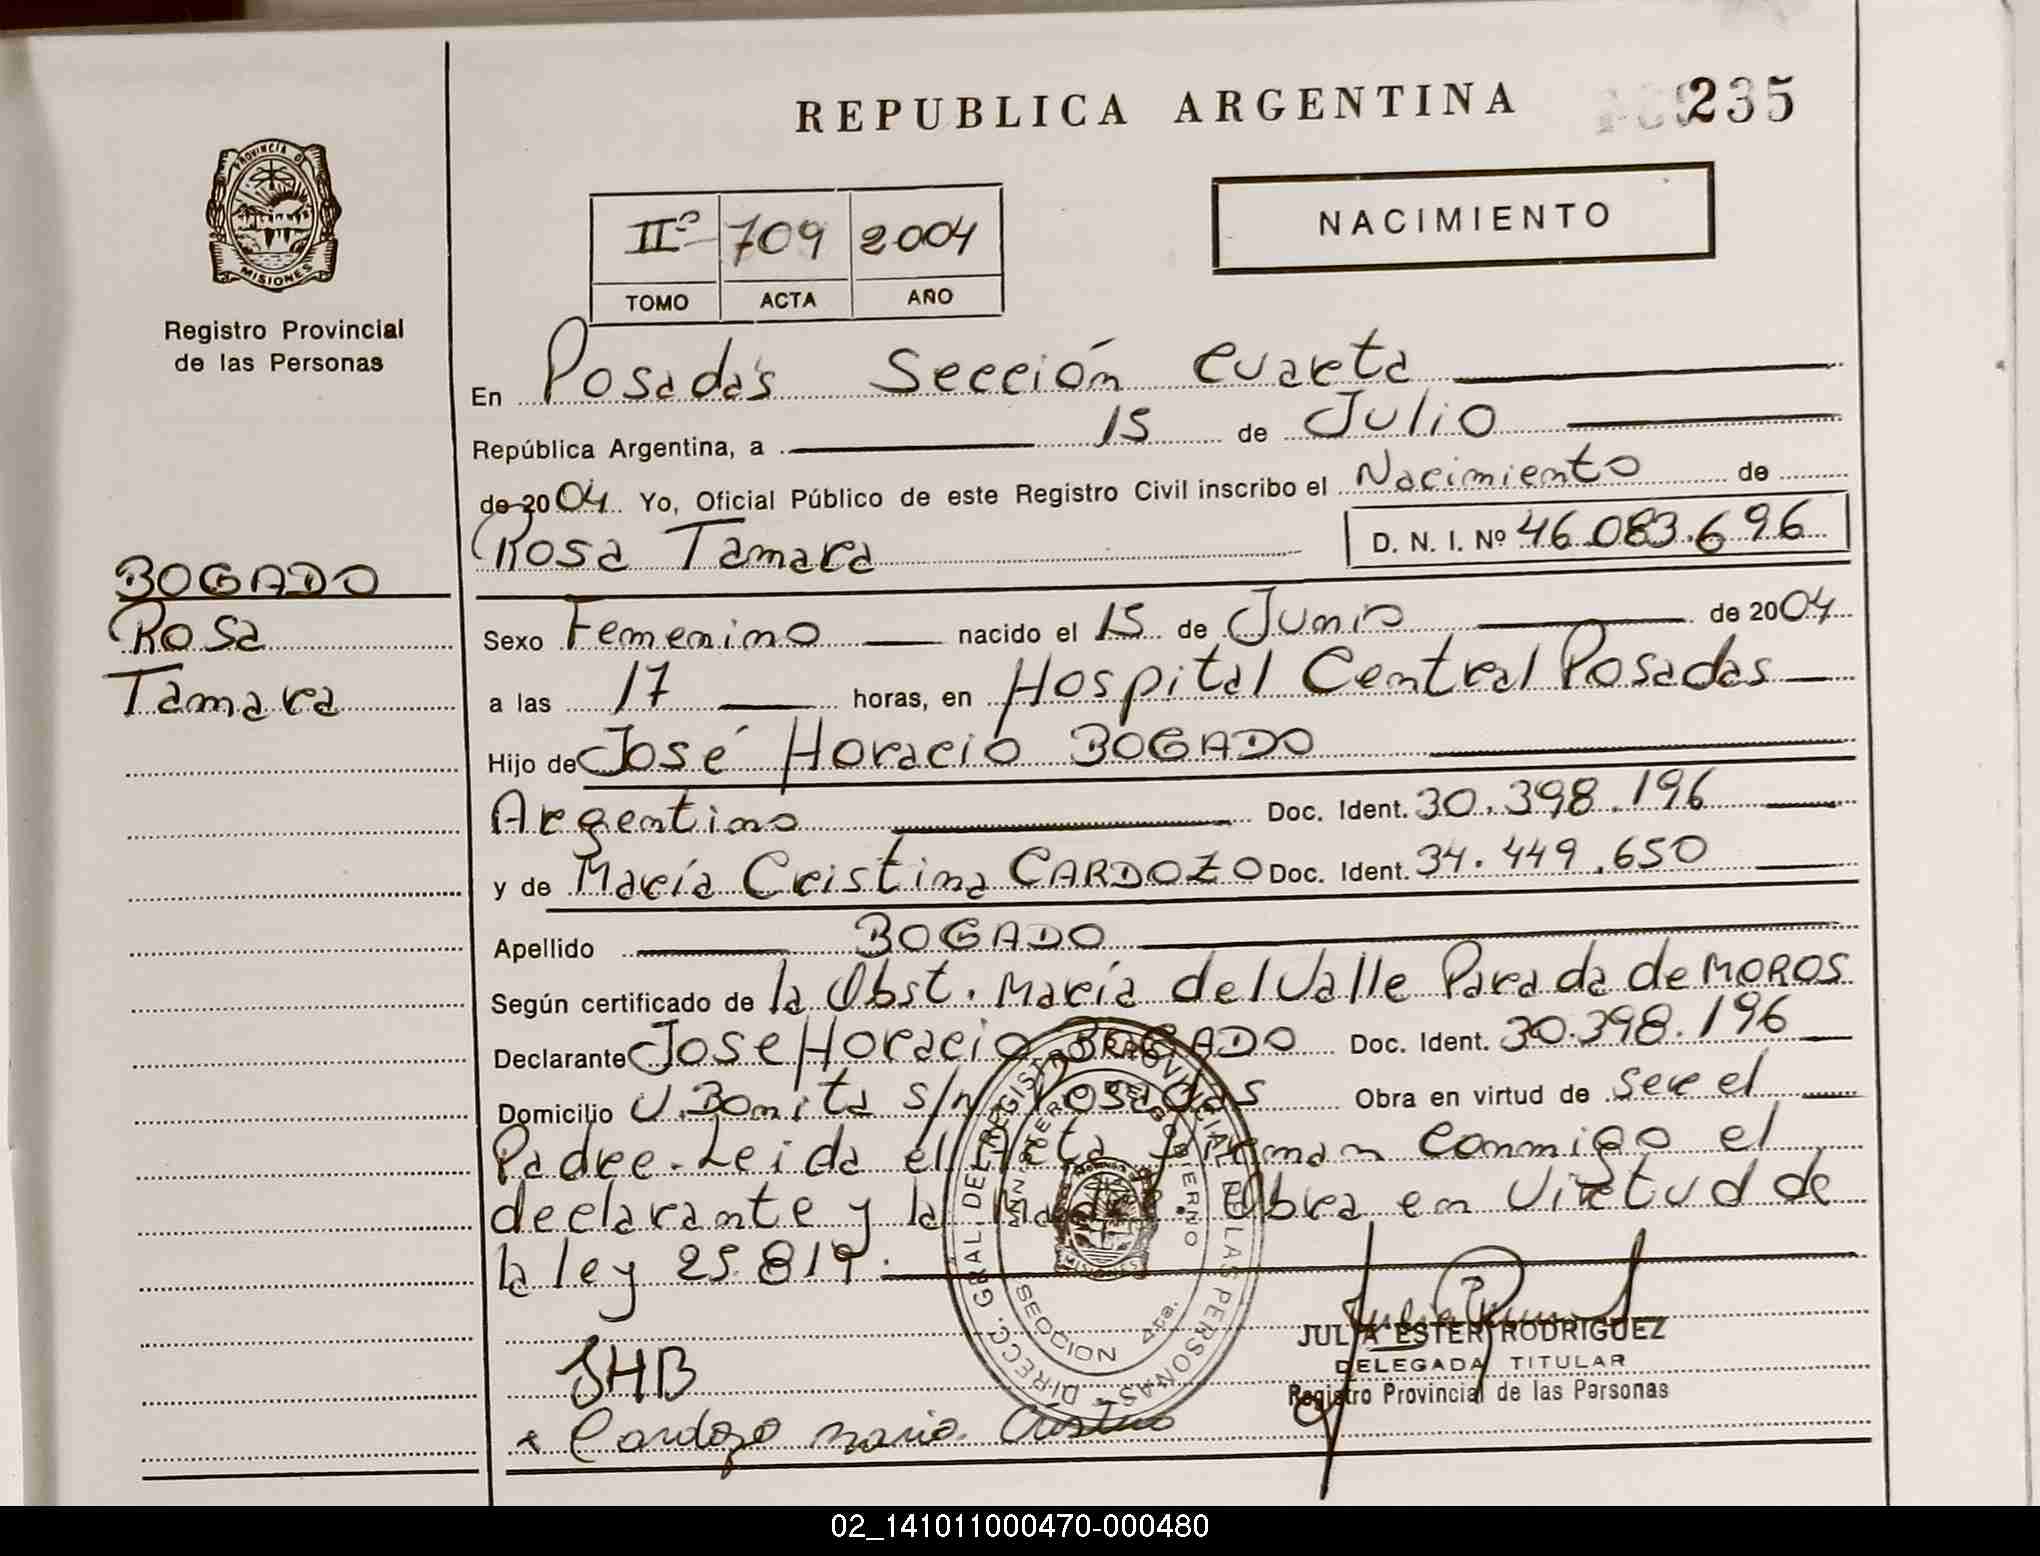 REPUBLICA ARGENTINA
235
PROVINCIA DE
MISIONES
Registro Provincial
de las Personas
NACIMIENTO
IIº 709 2004
TOMO ACTA AÑO
En Posadas Sección Cuarta
República Argentina, a 15 de Julio
de 2004 Yo, Oficial Público de este Registro Civil inscribo el Nacimiento de
Rosa Tamara D. N. I. Nº 46.083.696
BOGADO
Rosa
Tamara
Sexo Femenino nacido el 15 de Junio de 2004
a las 17 horas, en Hospital Central Posadas
Hijo de José Horacio BOGADO
Argentino Doc. Ident. 30.398.196
y de María Cristina CARDOZO Doc. Ident. 34.449.650
Apellido BOGADO
Según certificado de la Obst. María del Valle Parada de MOROS
Declarante Jose Horacio BOGADO Doc. Ident. 30.398.196
Domicilio V. Bonita s/n Posadas Obra en virtud de ser el
Padre. Leida el Acta firman conmigo el
declarante y la Madre. Obra en Virtud de
la ley 25.819.
DIRECC. GRAL DEL REGISTRO PROVINCIAL DE LAS PERSONAS
SECCION 4ta.
JHB
JULIA ESTER RODRIGUEZ
DELEGADA TITULAR
Registro Provincial de las Personas
x Cardozo maria Cristina
02_141011000470-000480